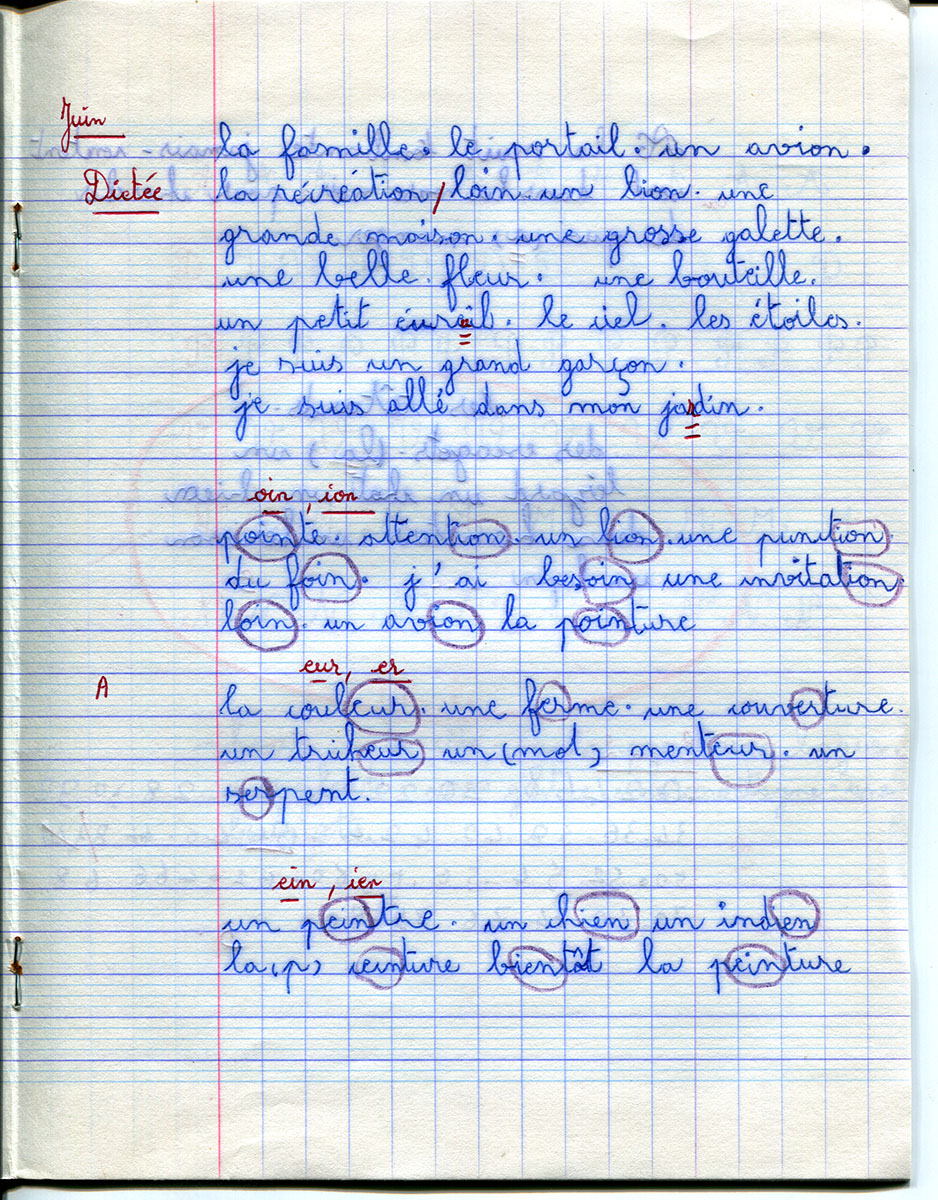 Juin
la famille. le portail. un avion.
Dictée
la récréation/loin. un lion. une
grande maison. une grosse galette.
une belle fleur. une bouteille.
un petit écureil. le ciel. les étoiles.
je suis un grand garçon.
je suis allé dans mon jardin.
oin, ion
pointe. attention. un lion. une punition.
du foin. j'ai besoin une invitation.
loin. un avion la pointure
eur, er
A
la couleur. une ferme. une couverture.
un tricheur un (mot) menteur. un
serpent.
ein, ien
un peintre. un chien un indien
la (p) ceinture bientôt la peinture